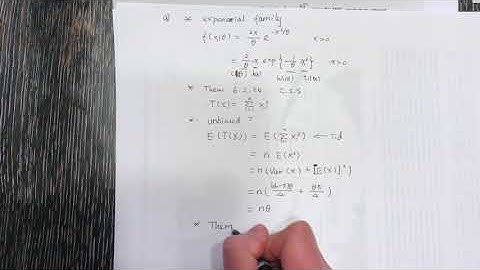 a) * exponential family
f(x|θ) = 2x/θ e^{-x²/θ} x>0
= 2/θ x exp{-1/θ x²} x>0
c(θ) h(x) w(θ) t(x)
* Them 6.2.24 C.S.S
T(X) = Σ_{i=1}^{n} X_i²
* unbiased ?
E(T(X)) = E(Σ_{i=1}^{n} X_i²) ← i.d
= n E(X²)
= n (Var(X) + [E(X)]²)
= n ( + θπ/4)
= nθ
* Them